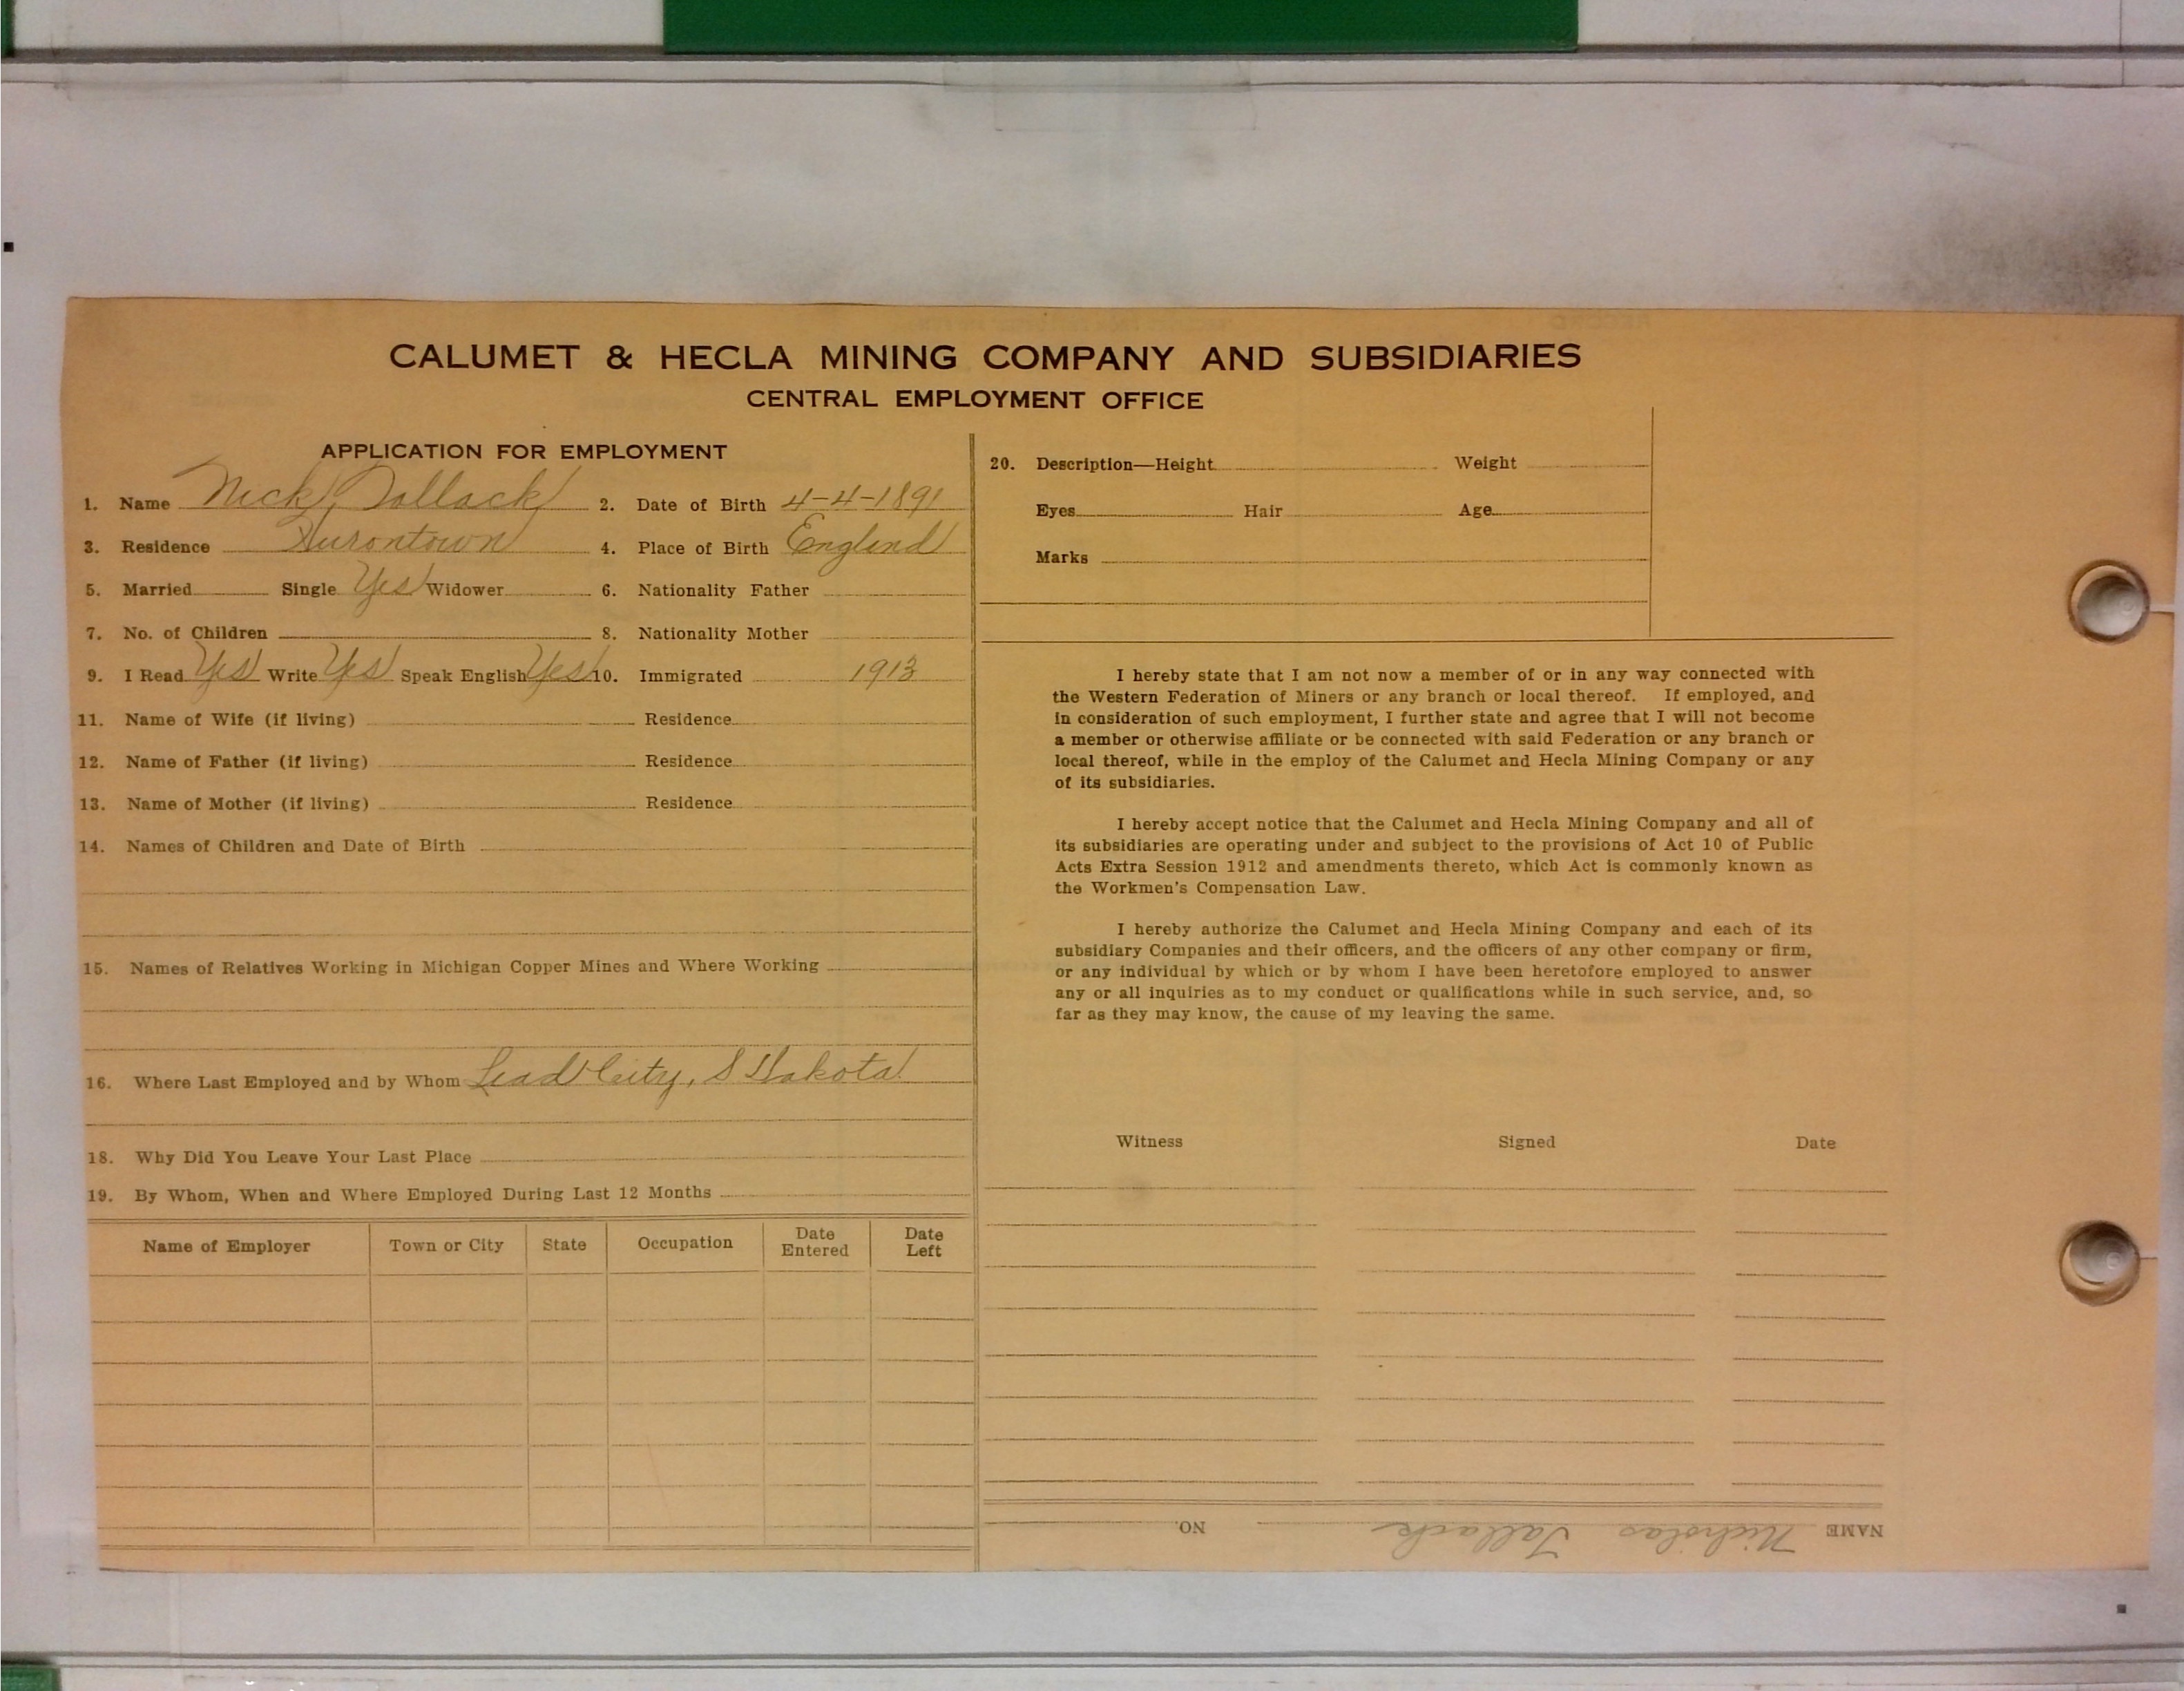 CALUMET & HECLA MINING COMPANY AND SUBSIDIARIES
CENTRAL EMPLOYMENT OFFICE
APPLICATION FOR EMPLOYMENT
1. Name Nick Tallack 2. Date of Birth 4-4-1891
3. Residence Hurontown 4. Place of Birth England
5. Married Single Yes Widower 6. Nationality Father
7. No. of Children 8. Nationality Mother
9. I Read Yes Write Yes Speak English Yes 10. Immigrated 1913
11. Name of Wife (if living) Residence
12. Name of Father (if living) Residence
13. Name of Mother (if living) Residence
14. Names of Children and Date of Birth
15. Names of Relatives Working in Michigan Copper Mines and Where Working
16. Where Last Employed and by Whom Lead City, S Dakota
18. Why Did You Leave Your Last Place
19. By Whom, When and Where Employed During Last 12 Months
Name of Employer Town or City State Occupation Date Entered Date Left
20. Description—Height Weight
Eyes Hair Age
Marks
I hereby state that I am not now a member of or in any way connected with
the Western Federation of Miners or any branch or local thereof. If employed, and
in consideration of such employment, I further state and agree that I will not become
a member or otherwise affiliate or be connected with said Federation or any branch or
local thereof, while in the employ of the Calumet and Hecla Mining Company or any
of its subsidiaries.
I hereby accept notice that the Calumet and Hecla Mining Company and all of
its subsidiaries are operating under and subject to the provisions of Act 10 of Public
Acts Extra Session 1912 and amendments thereto, which Act is commonly known as
the Workmen's Compensation Law.
I hereby authorize the Calumet and Hecla Mining Company and each of its
subsidiary Companies and their officers, and the officers of any other company or firm,
or any individual by which or by whom I have been heretofore employed to answer
any or all inquiries as to my conduct or qualifications while in such service, and, so
far as they may know, the cause of my leaving the same.
Witness Signed Date
NAME Nicholas Tallack NO.